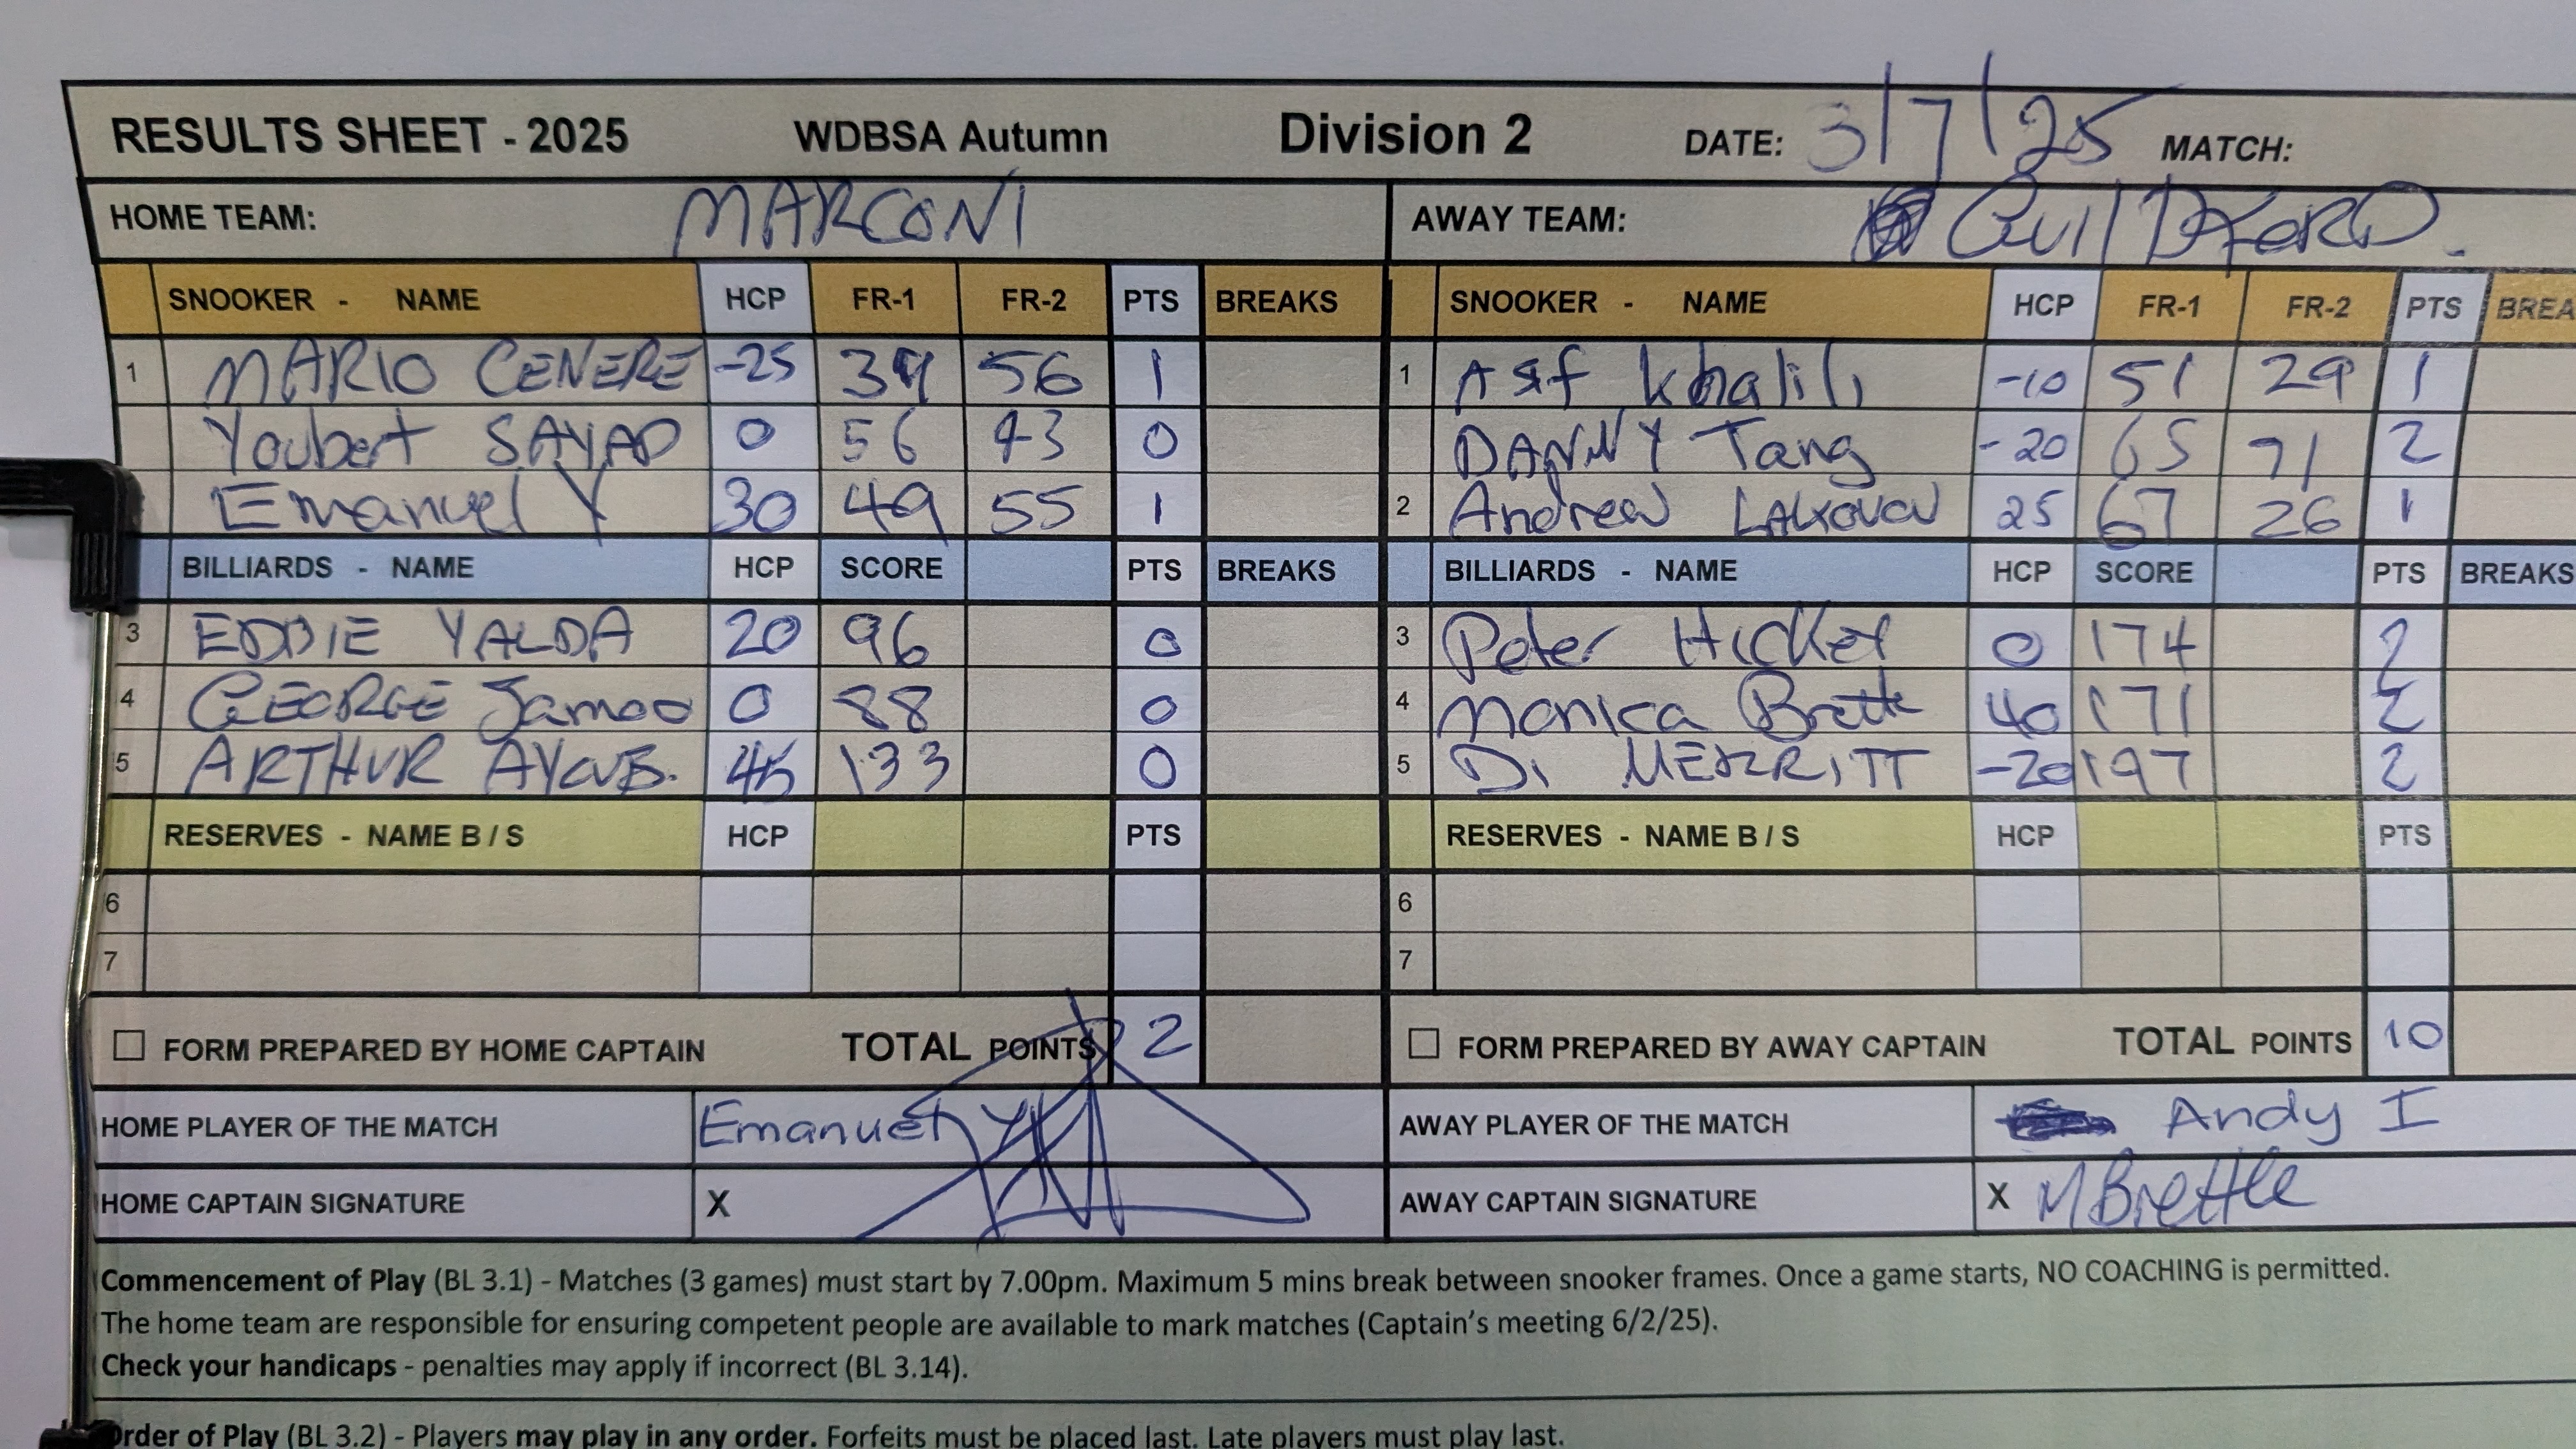 RESULTS SHEET - 2025 WDBSA Autumn Division 2 DATE: 3/7/25 MATCH:
HOME TEAM: MARCONI AWAY TEAM: GuilDforD.
SNOOKER - NAME HCP FR-1 FR-2 PTS BREAKS SNOOKER - NAME HCP FR-1 FR-2 PTS BREA
1 MARIO CENERE -25 39 56 1 1 Asif Khalili -10 51 29 1
Youbert SAYAD 0 56 43 0 DANNY Tang -20 65 71 2
Emanuel Y 30 49 55 1 2 Andrew 25 67 26 1
BILLIARDS - NAME HCP SCORE PTS BREAKS BILLIARDS - NAME HCP SCORE PTS BREAKS
3 EDDIE YALDA 20 96 0 3 Peter Hickey 0 174 2
4 GEORGE Jamoo 0 88 0 4 Monica Brettle 40 171 2
5 ARTHUR AYOUB. 45 133 0 5 Di MERRITT -20 197 2
RESERVES - NAME B / S HCP PTS RESERVES - NAME B / S HCP PTS
6 6
7 7
FORM PREPARED BY HOME CAPTAIN TOTAL POINTS 2 FORM PREPARED BY AWAY CAPTAIN TOTAL POINTS 10
HOME PLAYER OF THE MATCH Emanuel Y AWAY PLAYER OF THE MATCH Andy I
HOME CAPTAIN SIGNATURE X AWAY CAPTAIN SIGNATURE X M Brettle
Commencement of Play (BL 3.1) - Matches (3 games) must start by 7.00pm. Maximum 5 mins break between snooker frames. Once a game starts, NO COACHING is permitted.
The home team are responsible for ensuring competent people are available to mark matches (Captain's meeting 6/2/25).
Check your handicaps - penalties may apply if incorrect (BL 3.14).
Order of Play (BL 3.2) - Players may play in any order. Forfeits must be placed last. Late players must play last.